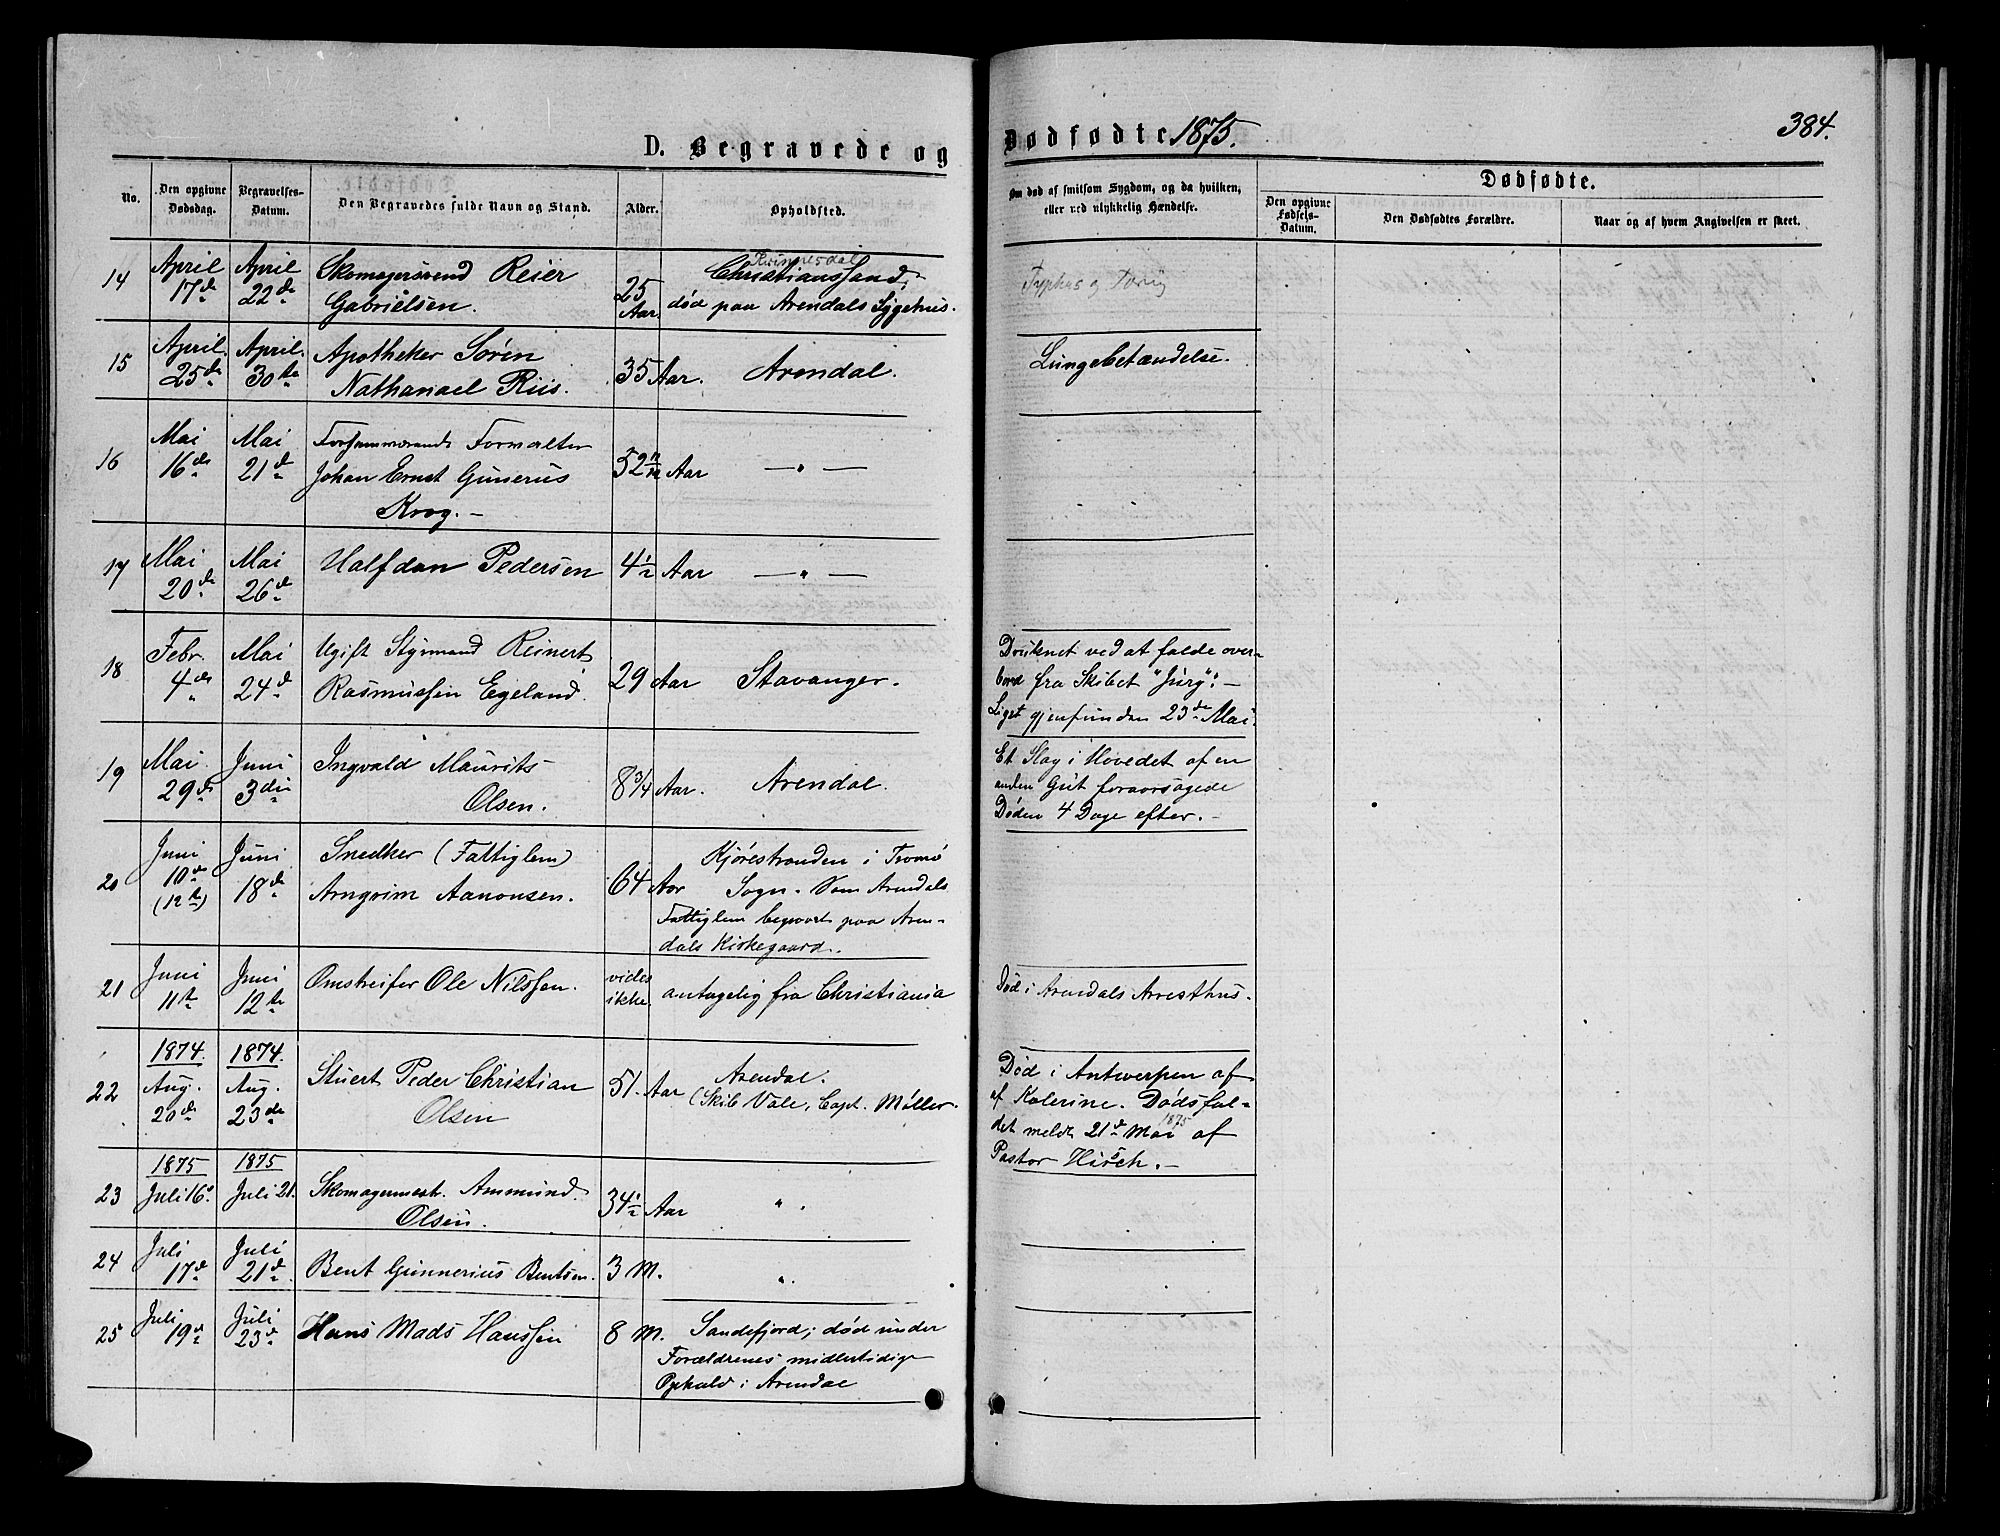 D. Begravede og
Dødfødte 1875.
384.
No.
Den opgivne Dødsdag.
Begravelses-Datum.
Den Begravedes fulde Navn og Stand.
Alder.
Opholdsted.
Om død af smitsom Sygdom, og da hvilken,
eller ved ulykkelig Hændelse.
Dødfødte.
Den opgivne Fødsels-Datum.
Den Dødfødtes Forældre.
Naar og af hvem Angivelsen er skeet.
14 April 17de April 22de Skomagersvend Reier
Gabrielsen. 25 Aar. Christianssand,
død paa Arendals Sygehus.
Typhus
15 April 25de April 30te Apotheker Sørin
Nathanael Riis. 35 Aar. Arendal.
Lungebetændelse.
16 Mai 16de Mai 21de Forhenværende Forvalter
Johan Ernst Gunerus
Krog. – 52 Aar — " —
17 Mai 20de Mai 26de Halfdan Pedersen 4 1/2 Aar — " —
18 Febr. 4de Mai 24de Ugift Styrmand Reinert
Rasmussen Egeland. 29 Aar Stavanger.
Druknet ved at falde over-
bord fra Skibet "Jury". –
Liget gjenfunden 23de Mai.
19 Mai 29de Juni 3die Ingvald Maurits
Olsen. 8 3/4 Aar. Arendal.
Et Slag i Hovedet af en
anden Gut foraarsagede
Døden 4 Dage efter. –
20 Juni 10de (12te) Juni 18de Snedker (Fattiglem)
Arngrim Aanonsen. 64 Aar
Kjørestranden i Tromø
Sogn. Som Arendals
Fattiglem begravet paa Aren-
dals Kirkegaard.
21 Juni 11te Juni 12te Omstreifer Ole Nilssen. vides ikke antagelig fra Christiania
Død i Arendals Arresthus.
22 1874. Aug. 20de 1874. Aug. 23de Stuert Peder Christian
Olsen 51. Aar Arendal.
(Skib Vale, Capt. Møller.
Død i Antwerpen af
af Kolerine. Dødsfal-
det meldt 21de Mai 1875 af
Pastor Hirsch. –
23 1875 Juli 16. 1875 Juli 21. Skomagermestr. Ammund
Olsen. 34 1/2 Aar " .
24 Juli 17de Juli 21de Bent Gunnerius Bentsen. 3 M. " .
25 Juli 19de Juli 23de Hans Mads Hanssen 8 M. Sandefjord; død under
Forældrenes midlertidige
Ophold i Arendal